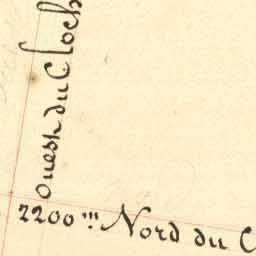 Ouest du Cloch
2200 m Nord du C